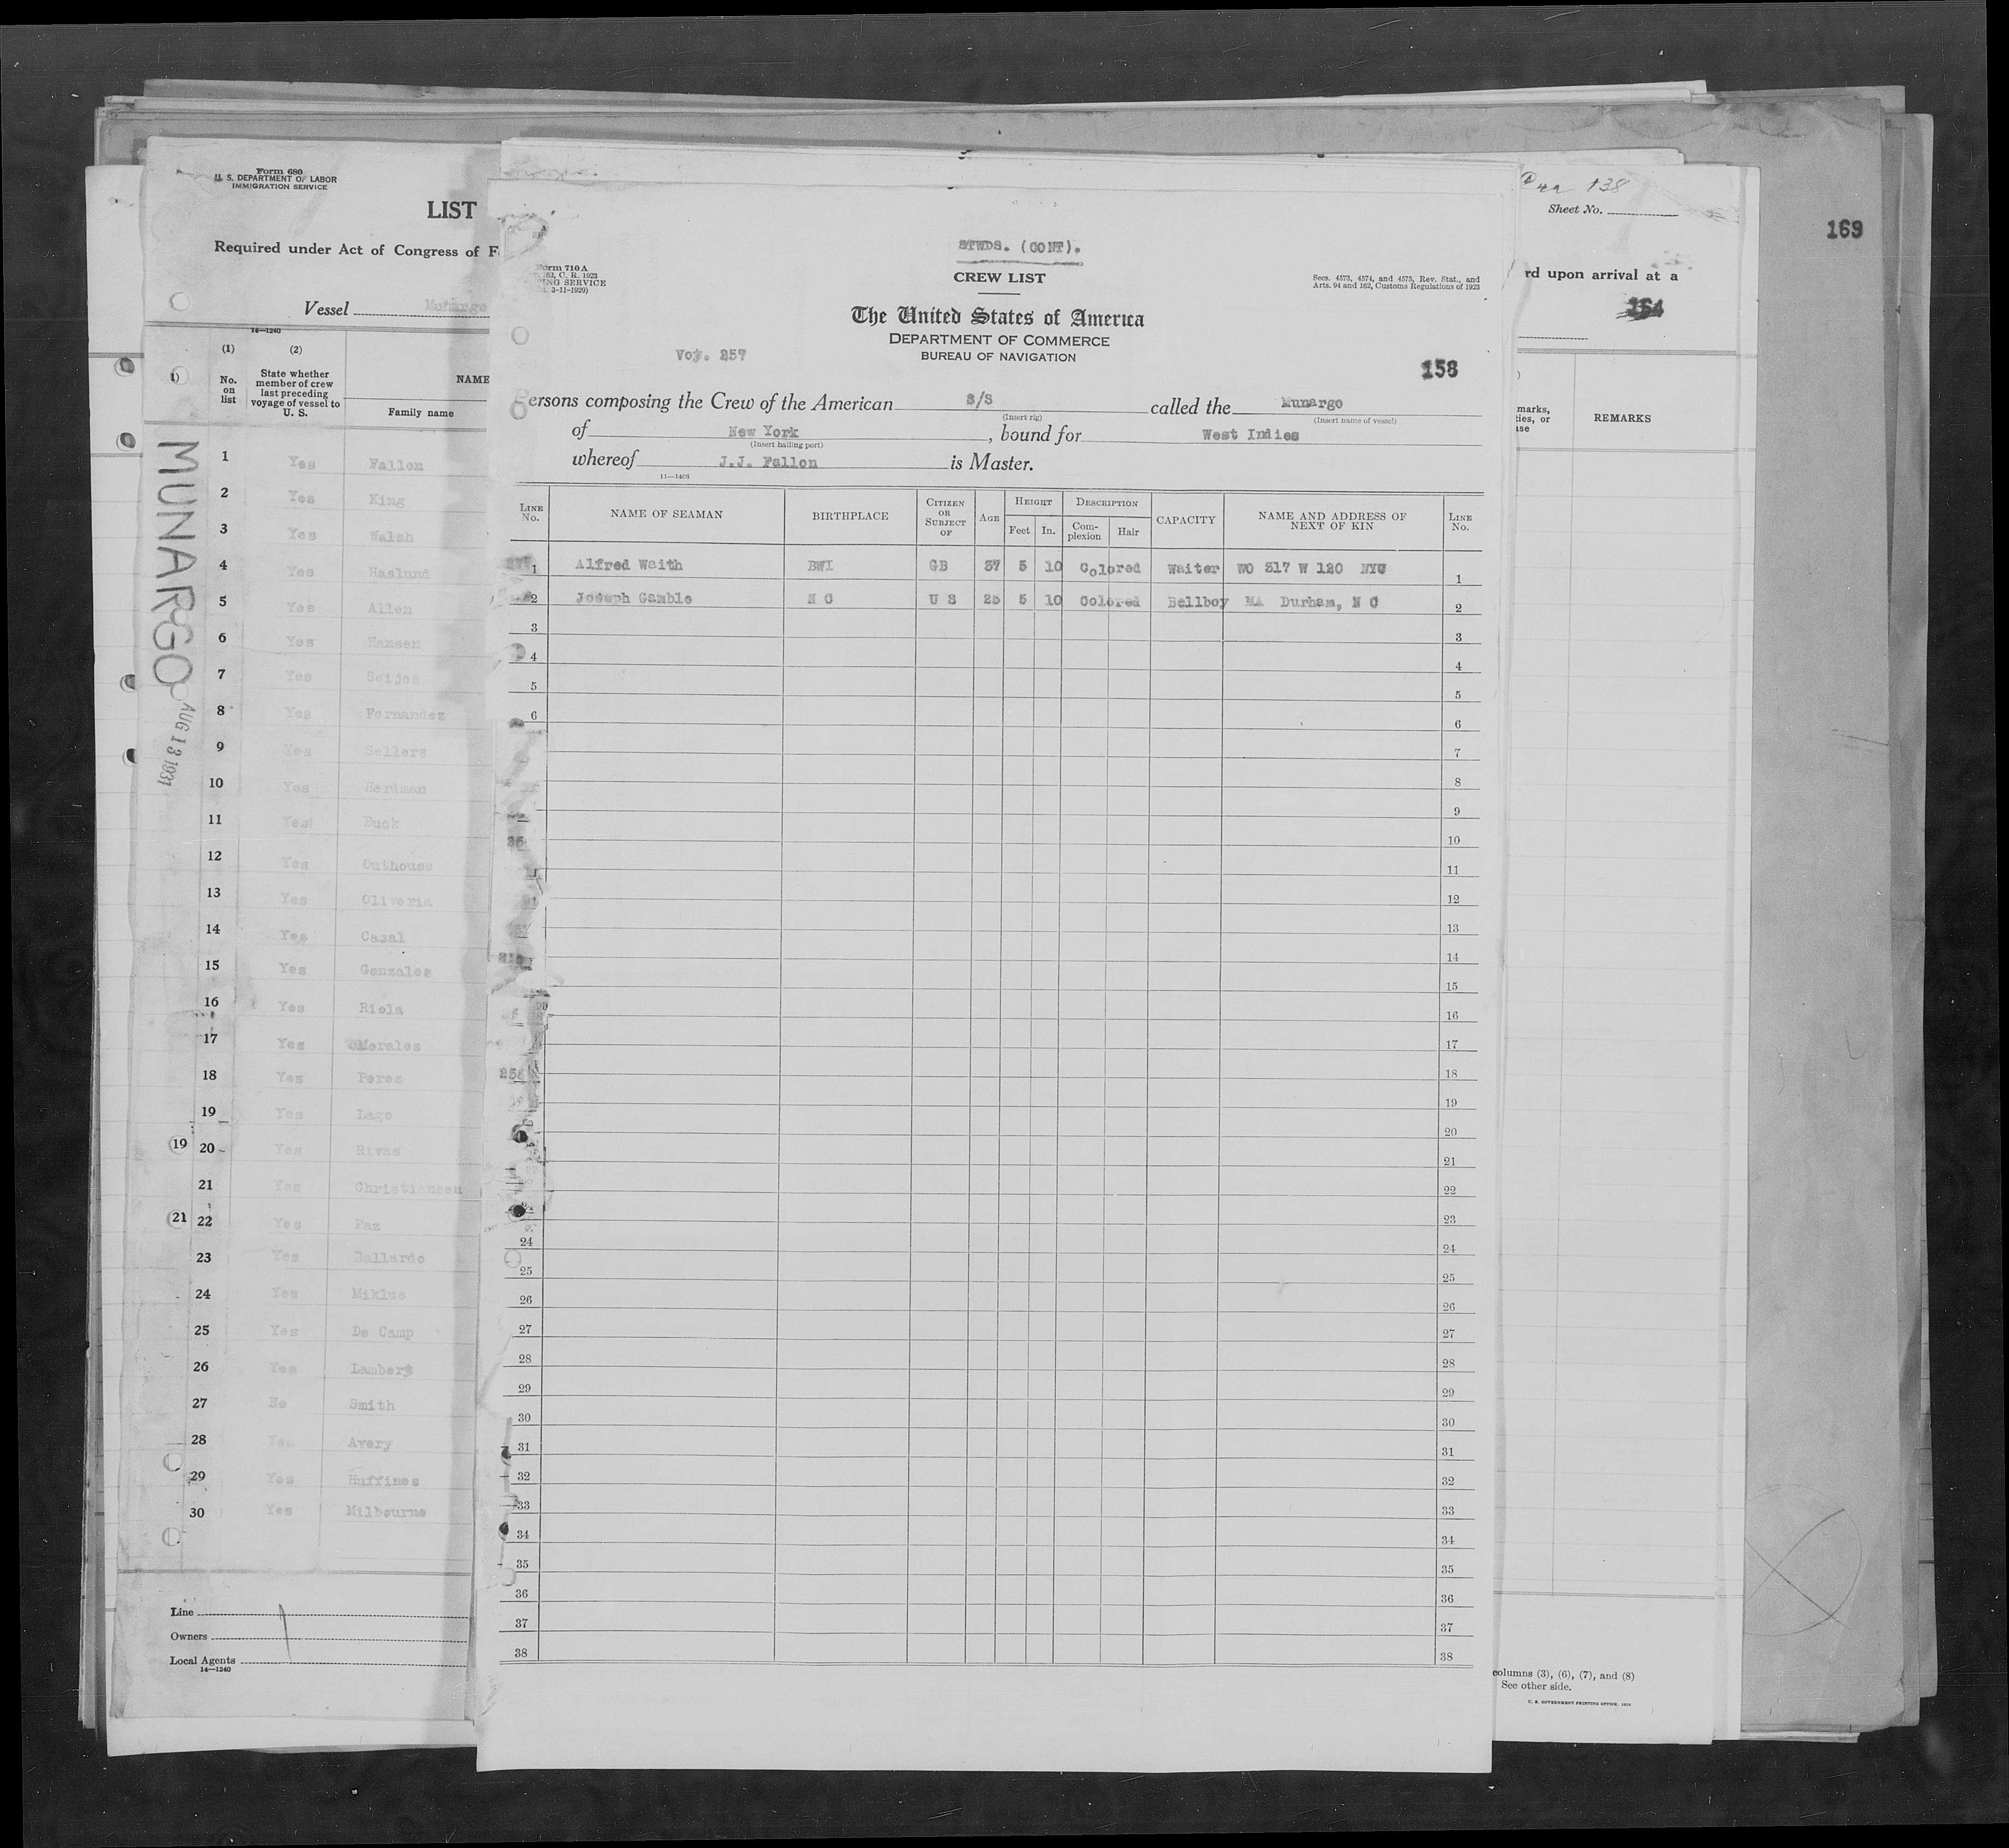 Form 680
U. S. DEPARTMENT OF LABOR
IMMIGRATION SERVICE
LIST
Required under Act of Congress of F
Vessel Munargo
14—1240
(1) (2)
No. on list
State whether member of crew last preceding voyage of vessel to U. S.
NAME
Family name
MUNARGO
AUG 13 1931
1 Yes Fallon
2 Yes King
3 Yes Walsh
4 Yes Haslund
5 Yes Allen
6 Yes Hansen
7 Yes Seijes
8 Yes Fernandez
9 Yes Sellers
10 Yes Herdman
11 Yes Buck
12 Yes Outhouse
13 Yes Oliveria
14 Yes Casal
15 Yes Gonzales
16 Yes Riola
17 Yes Morales
18 Yes Perez
19 Yes Lago
19 20 Yes Rivas
21 Yes Christiansen
21 22 Yes Paz
23 Yes Ballardo
24 Yes Miklus
25 Yes De Camp
26 Yes Lambert
27 No Smith
28 Yes Avery
29 Yes Huffines
30 Yes Milbourne
Line
Owners
Local Agents
14—1240
STWDS. (CONT).
CREW LIST
Form 710A
C. R. 1923
ING SERVICE
3-11-1929)
Secs. 4573, 4574, and 4575, Rev. Stat., and
Arts. 94 and 162, Customs Regulations of 1923
The United States of America
DEPARTMENT OF COMMERCE
BUREAU OF NAVIGATION
Voy. 257
158
ersons composing the Crew of the American S/S called the Munargo
(Insert rig) (Insert name of vessel)
of New York, bound for West Indies
(Insert hailing port)
whereof J.J. Fallon is Master.
11—1403
LINE No. NAME OF SEAMAN BIRTHPLACE CITIZEN OR SUBJECT OF AGE HEIGHT Feet In. DESCRIPTION Complexion Hair CAPACITY NAME AND ADDRESS OF NEXT OF KIN LINE No.
1 Alfred Waith BWI GB 37 5 10 Colored Waiter WO 317 W 120 NYC 1
2 Joseph Gamble N C U S 25 5 10 Colored Bellboy MA Durham, N C 2
3 3
4 4
5 5
6 6
7
8
9
10
11
12
13
14
15
16
17
18
19
20
21
22
23
24 24
25 25
26 26
27 27
28 28
29 29
30 30
31 31
32 32
33 33
34 34
35 35
36 36
37 37
38 38
138
Sheet No.
169
rd upon arrival at a
164
marks,
ties, or
use
REMARKS
columns (3), (6), (7), and (8)
See other side.
U. S. GOVERNMENT PRINTING OFFICE